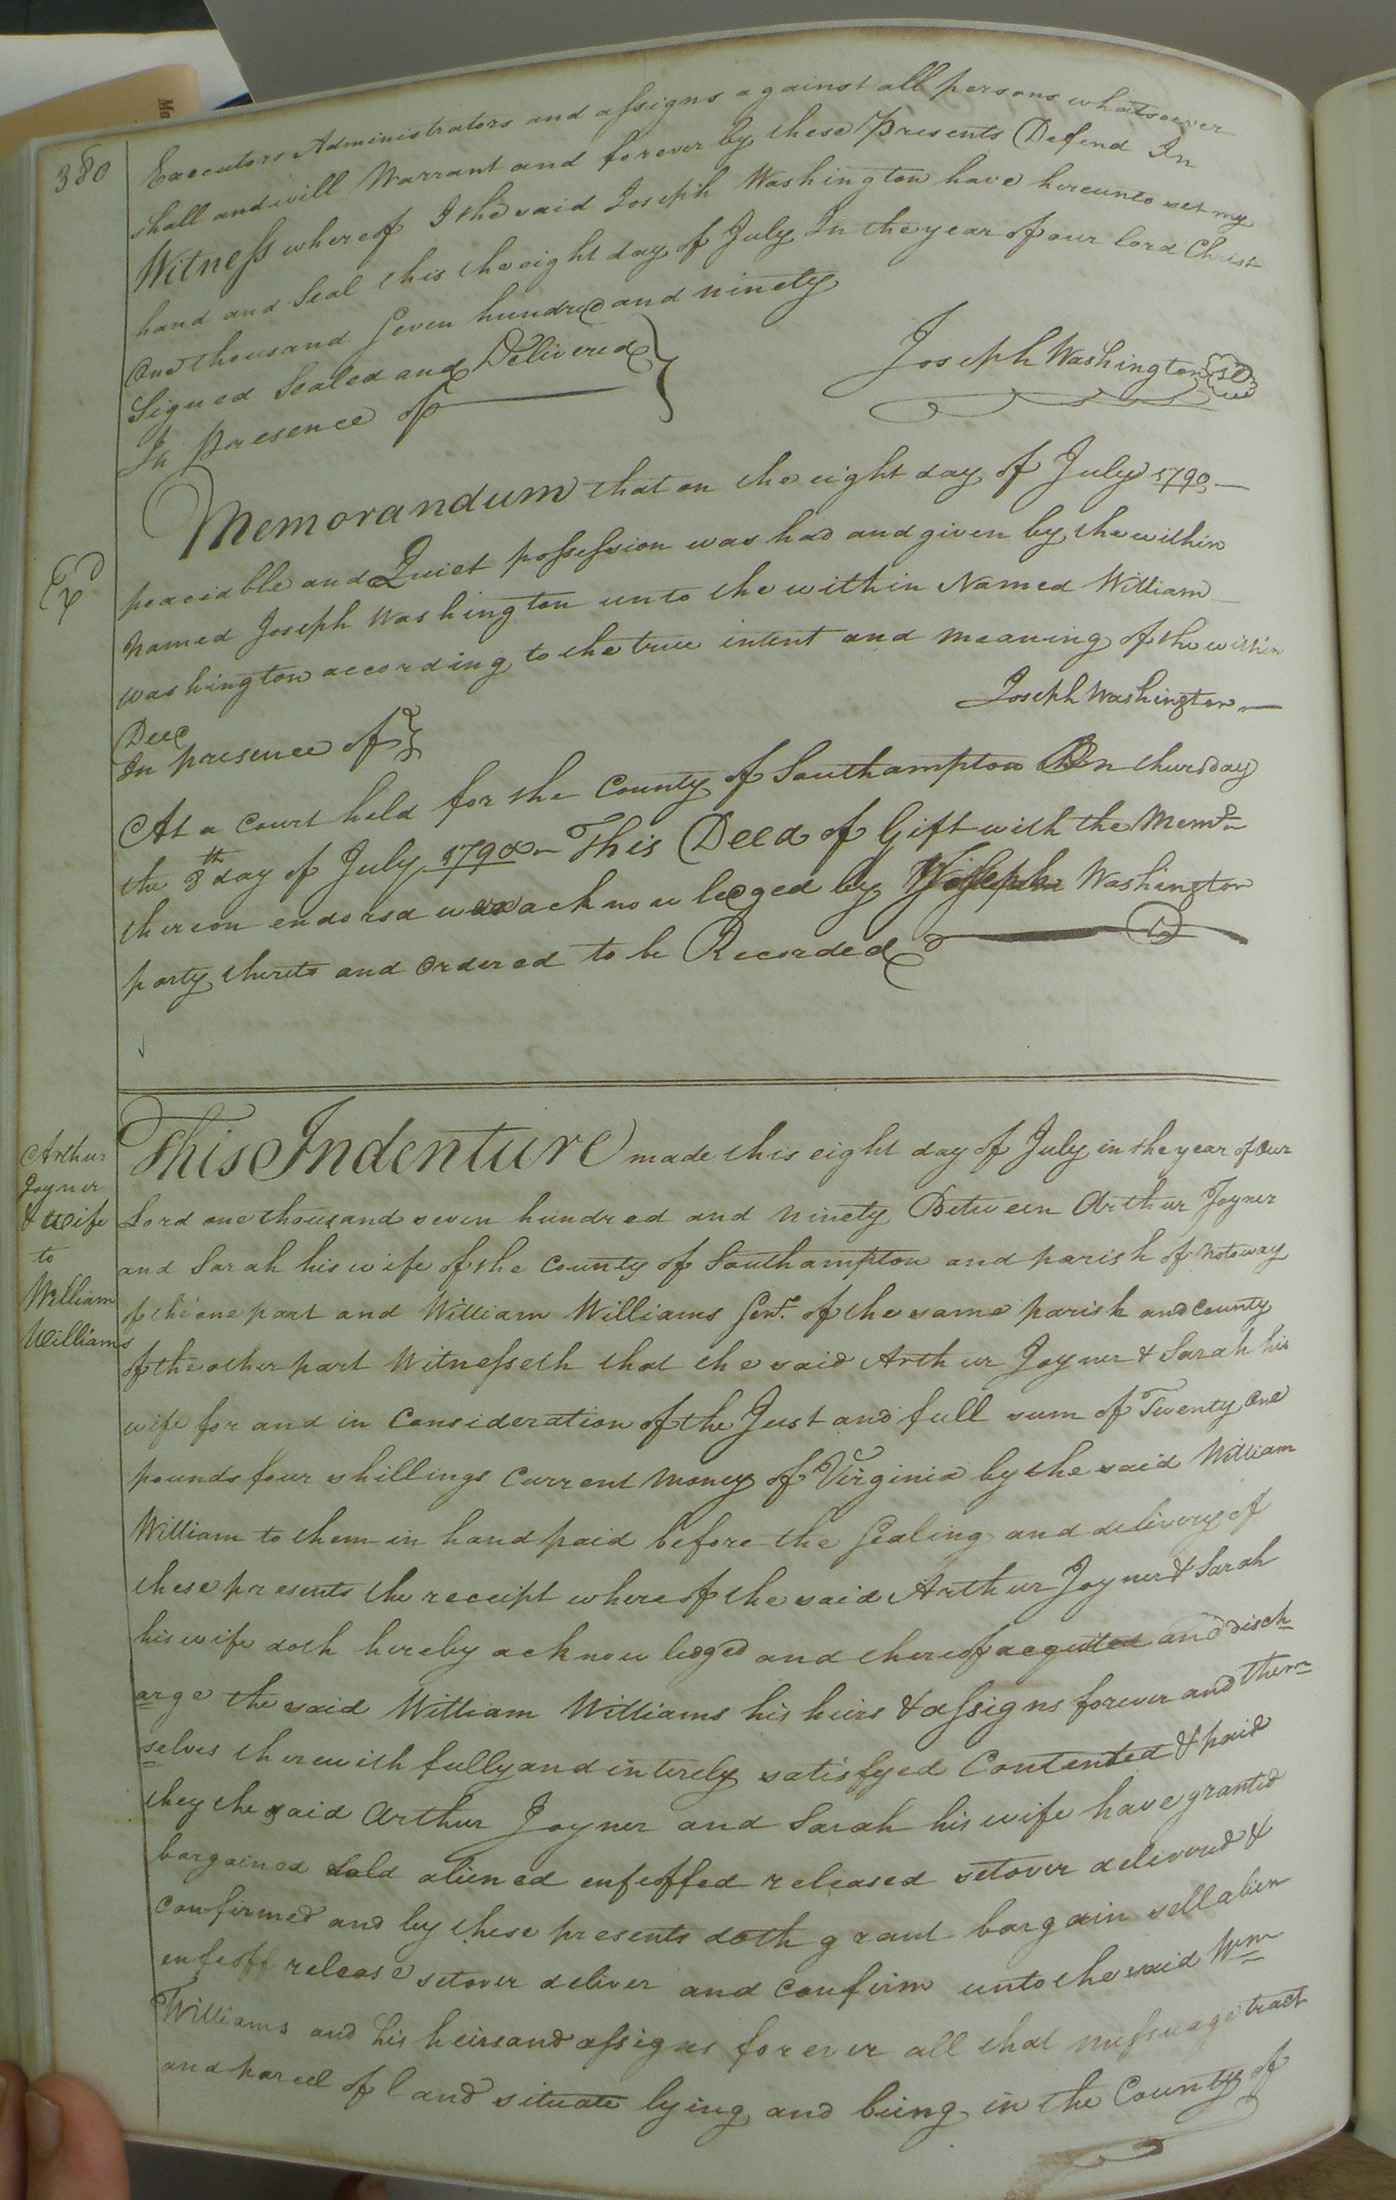 380
Executors Administrators and assigns against all persons whatsoever
shall and will Warrant and forever by these Presents Defend In
Witness whereof I the said Joseph Washington have hereunto set my
hand and Seal this the eight day of July In the year of our lord Christ
One thousand Seven hundred and ninety
Signed Sealed and Delivered
In Presence of
Joseph Washington
Memorandum that on the eight day of July 1790
peaciable and Quiet possession was had and given by the within
Named Joseph Washington unto the within Named William
Washington according to the true intent and meaning of the within
Deed
Joseph Washington
In presence of
At a Court held for the County of Southampton On thursday
the 8th day of July 1790 This Deed of Gift with the Memdm
thereon endorsd was acknowledged by Joseph Washington
party thereto and Ordered to be Recorded
Arthur
Joyner
& wife
to
William
Williams
This Indenture made this eight day of July in the year of our
Lord one thousand seven hundred and ninety Between Arthur Joyner
and Sarah his wife of the County of Southampton and parish of Notoway
of the one part and William Williams Gent. of the same parish and County
of the other part Witnesseth that the said Arthur Joyner & Sarah his
wife for and in Consideration of the Just and full sum of Twenty One
pounds four shillings Current Money of Virginia by the said William
William to them in hand paid before the Sealing and delivery of
these presents the receipt whereof the said Arthur Joyner & Sarah
his wife doth hereby acknowledged and thereof acquited and disch
arge the said William Williams his heirs & assigns forever and them
selves therewith fully and intirely satisfyed Contented & paid
they the said Arthur Joyner and Sarah his wife have granted
bargained Sold aliened enfeoffed released setover delivered &
Confirmed and by these presents doth grant bargain sell alien
enfeoff release setover deliver and Confirm unto the said Wm
Williams and his heirs and assigns forever all that messuage tract
and parcel of land situate lying and being in the County of